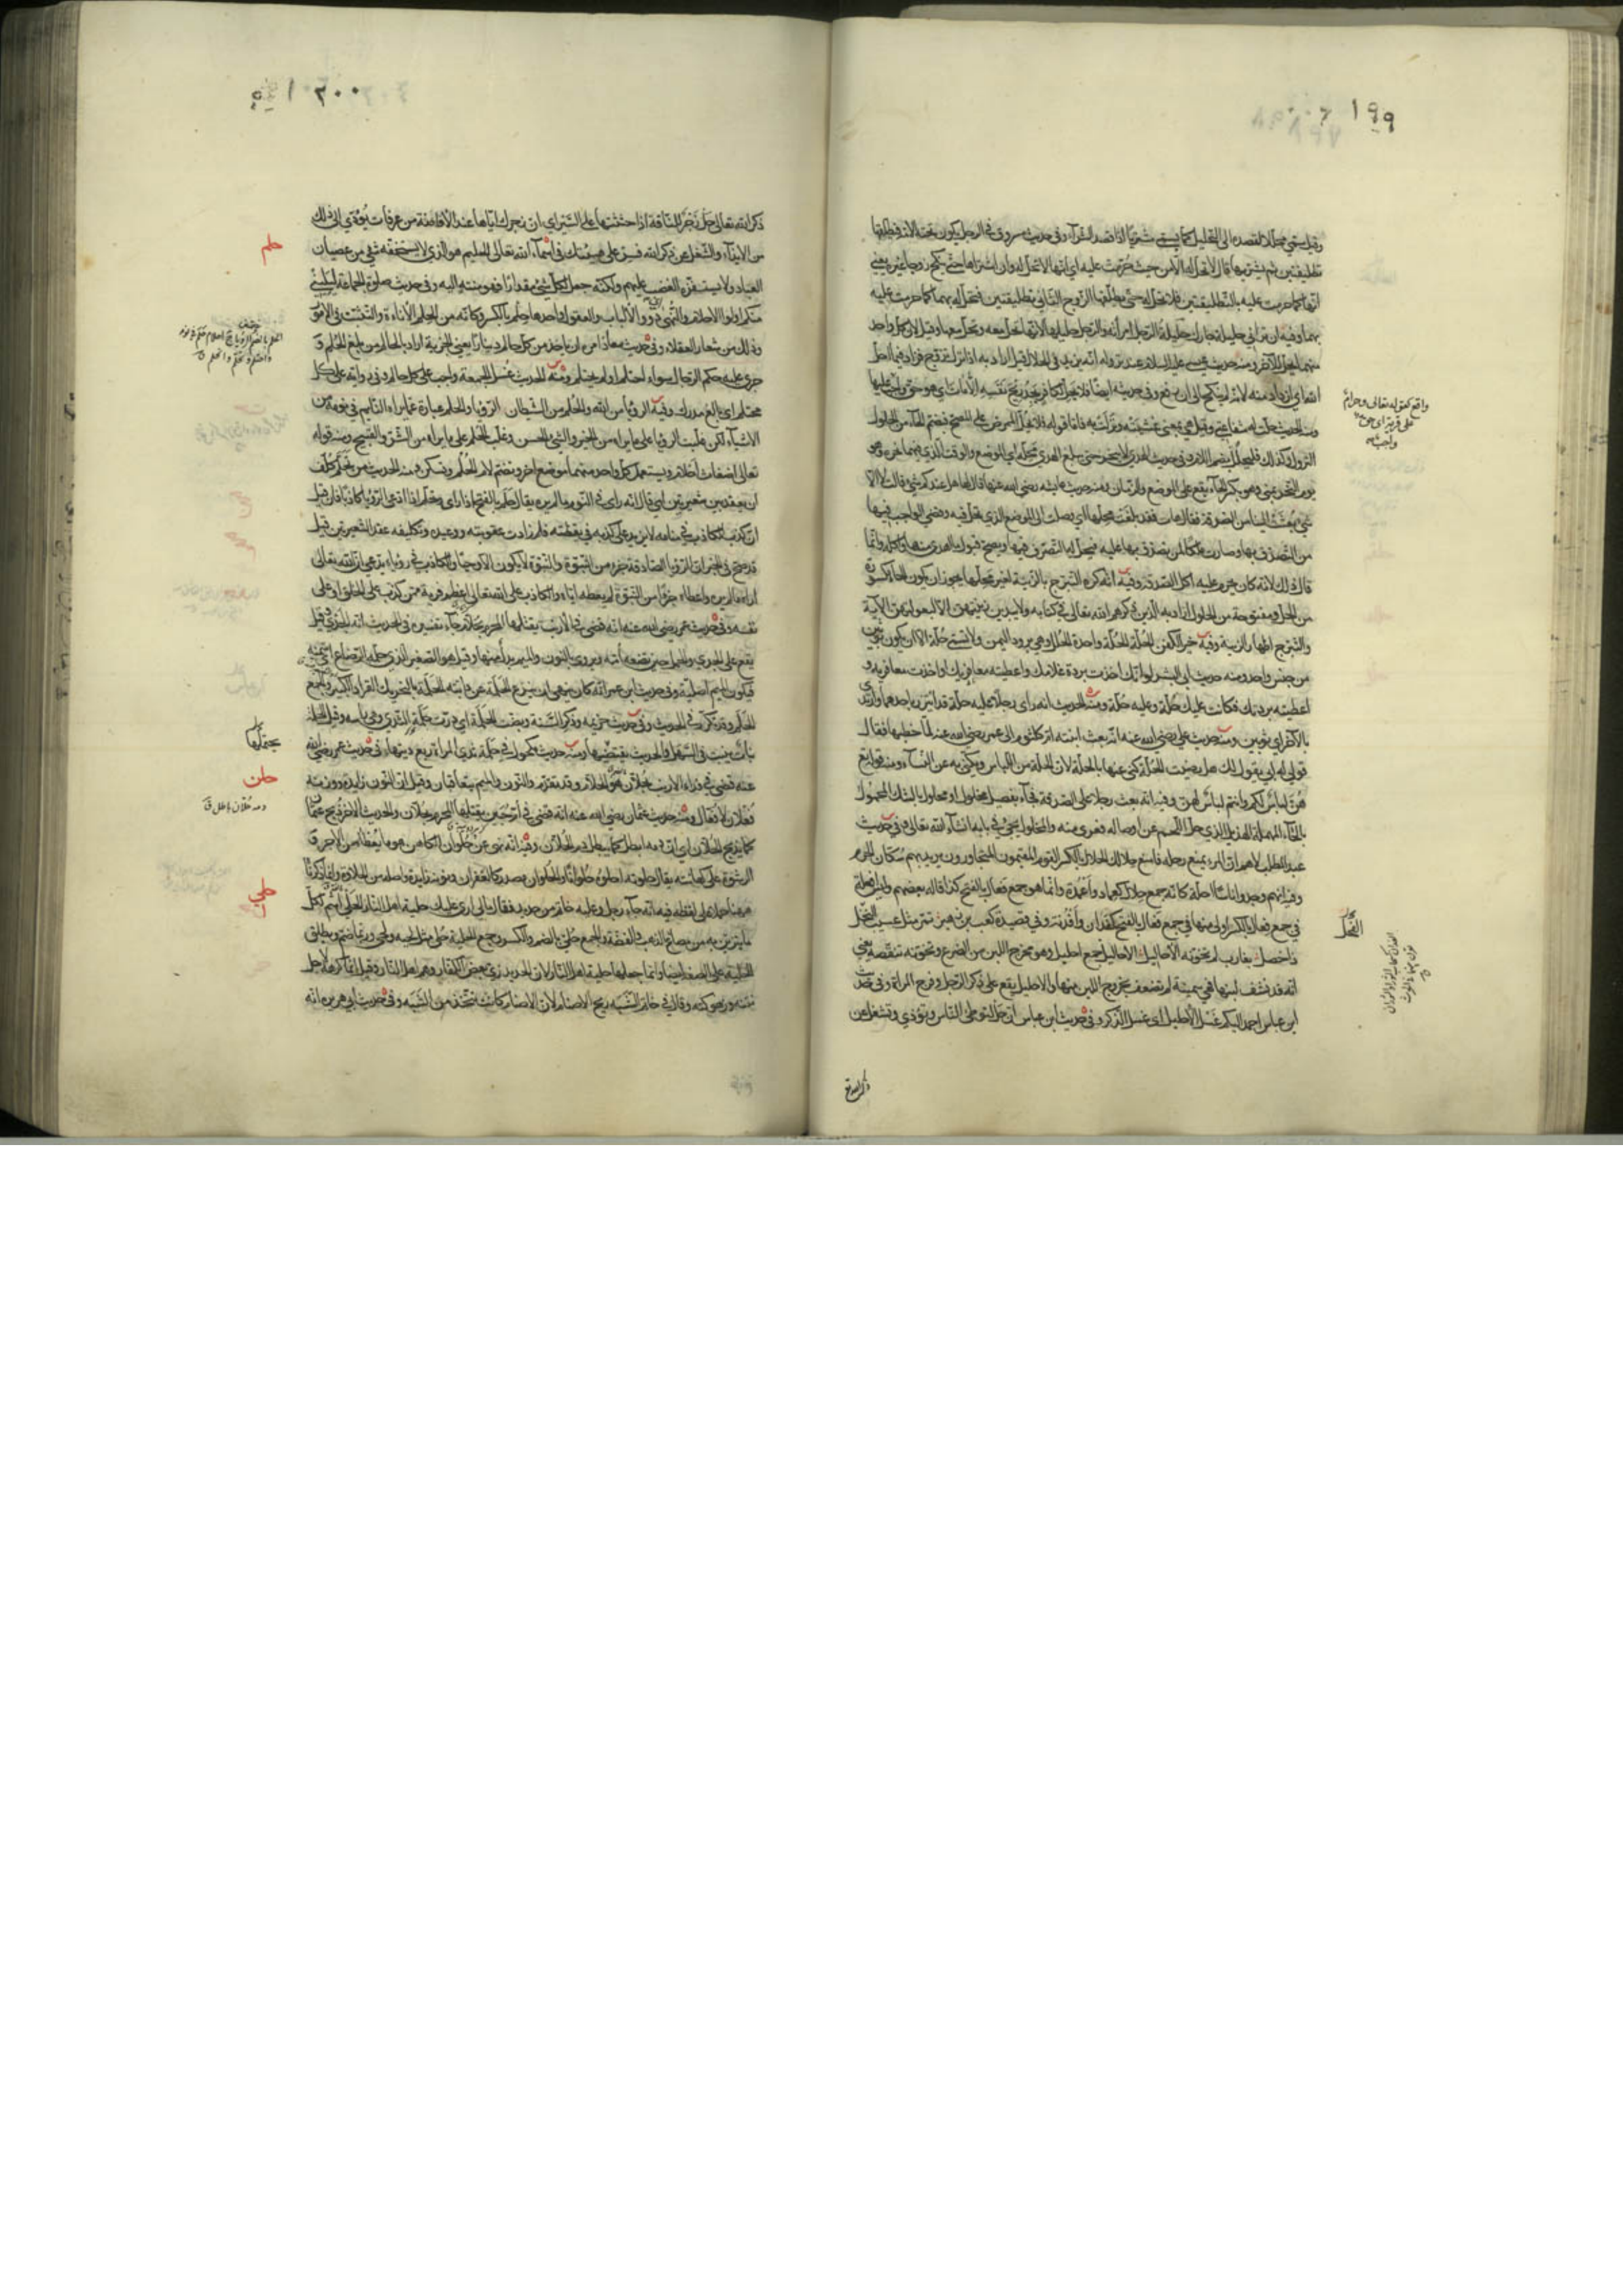 ١٩٩
وقيل سمي محللا لقصده الى التحليل كما يسمى مشتريا اذا قصد الشراء وفي حديث مسروق في الرجل يكون تحته الامة فيطلقها
تطليقتين ثم يشتريها قال لا تحل له الا من حيث حرمت عليه اي انها لا تحل له وان اشتراها حتى تنكح زوجا غيره يعني
انها كما حرمت عليه بالتطليقتين فلا تحل له حتى يطلقها الزوج الثاني تطليقتين فتحل له بهما كما حرمت عليه
بهما وفيه ان تزاني حليلة جارك حليلة الرجل امرأته والرجل حليلها لانها تحل معه ويحل معها وقيل لان كل واحد
منهما يحل للآخر ومنه حديث عيسى عليه السلام عند نزوله انه يزيد في الحلال قيل اراد به اذا نزل تزوج فزاد فيما احل
الله اي ازداد منه لانه لم ينكح الى ان رفع وفي حديثه ايضا فلا يحل لكافر يجد ريح نفسه الا مات اي هو حق واجب عليها
ومنه الحديث حلت له شفاعتي وقيل هي بمعنى غشيته ونزلت به فاما قوله لا يحل الممرض على المصح فبضم الحاء من الحلول
النزول وكذلك فليحلل بضم اللام وفي حديث الهدي لا ينحر حتى يبلغ الهدي محله اي الموضع والوقت الذي يحل فيهما نحره وهو
يوم النحر بمنى وهو بكسر الحاء يقع على الموضع والزمان ومنه حديث عايشه رضي الله عنها قال لها هل عندكم شي قالت لا الا
شي بعثت الينا من الصدقة فقال هات فقد بلغت محلها اي وصلت الى الموضع الذي تحل فيه وقضي الواجب فيها
من التصدق بها وصارت ملكا لمن تصدق بها عليه فيحل له التصرف فيها ويصح قبول الهدية منها واكله وانما
قال ذلك لانه كان يحرم عليه اكل الصدقة وفيه انه كره التبرج بالزينة لغير محلها يجوز ان يكون الحاء مكسورة
من الحل ومفتوحة من الحلول اراد به الذين ذكرهم الله تعالى في كتابه ولا يبدين زينتهن الا لبعولتهن الآية
والتبرج اظهار الزينة وفيه خير الكفن الحلة الحلة واحدة الحلل وهي برود اليمن ولا تسمى حلة الا ان يكون ثوبين
من جنس واحد ومنه حديث ابي اليسر لو انك اخذت بردة غلامك واعطيته معافريك واخذت معافريه و
اعطيته بردتك فكانت عليك حلة وعليه حلة ومنه الحديث انه راى رجلا عليه حلة قد ائتزر باحدهما وارتدى
بالآخر اي ثوبين ومنه حديث علي رضي الله عنه انه بعث ابنته ام كلثوم الى عمر رضي الله عنه لما خطبها فقال
قولي له ابي يقول لك هل رضيت الحلة كنى عنها بالحلة لان الحلة من اللباس ويكنى به عن النساء ومنه قوله تع
هن لباس لكم وانتم لباس لهن وفيه انه بعث رجلا على الصدقة فجاء بفصيل مخلول او محلول بالشك المحلول
بالحاء المهملة الهزيل الذي حل اللحم عن اوصاله فعرى منه والمخلول يجيء في بابه انشاء الله تعالى وفي حديث
عبد المطلب لاهم ان المرء يمنع رحله فامنع حلالك الحلال بالكسر القوم المقيمون المتجاورون يريد بهم سكان الحرم
وفيه انهم وجدوا ناسا احلة كانه جمع حلال كعماد واعمدة وانما هو جمع فعال بالفتح كذا قاله بعضهم وليس افعلة
في جمع فعال بالكسر اولى منها في جمع فعال بالفتح كفدان وافدنة وفي قصيدة كعب بن زهير تمر مثل عسيب النخل
ذا خصل بغارب لم تخونه الاحاليل الاحاليل جمع احليل وهو مخرج اللبن من الضرع وتخونه تنقصه يعني
انه قد نشف لبنها فهي سمينة لم تضعف بخروج اللبن منها والاحليل يقع على ذكر الرجل وفرج المرأة وفي حديث
ابن عباس احمد اليكم غسل الاحليل اي غسل الذكر وفي حديث ابن عباس ان حل لتوطي الناس وتؤذي وتشغل عن
ذكر الله تع
واقع كقوله تعالى وحرام
على قرية اي حق
واجب
النخل
٢٠٠
ذكر الله تعالى حل زجر للناقة اذا حثثتها على السير اي ان زجرك اياها عند الافاضة من عرفات يؤدي الى ذلك
من الايذاء والشغل عن ذكر الله فسر على هينتك في اسماء الله تعالى الحليم هو الذي لا يستخفه شي من عصيان
العباد ولا يستفزه الغضب عليهم ولكنه جعل لكل شي مقدارا فهو منته اليه وفي حديث صلوة الجماعة ليليني
منكم اولوا الاحلام والنهى اي ذوو الالباب والعقول واحدها حلم بالكسر وكانه من الحلم الأناءة والتثبت في الامور
وذلك من شعار العقلاء وفي حديث معاذ امره ان ياخذ من كل حالم دينارا يعني الجزية اراد بالحالم من بلغ الحلم و
جرى عليه حكم الرجال سواء احتلم او لم يحتلم ومنه الحديث غسل الجمعة واجب على كل حالم وفي رواية على كل
محتلم اي بالغ مدرك وفيه الرؤيا من الله والحلم من الشيطان الرؤيا والحلم عبارة عما يراه النايم في نومه من
الاشياء لكن غلبت الرؤيا على ما يراه من الخير والشي الحسن وغلب الحلم على ما يراه من الشر والقبيح ومنه قوله
تعالى اضغاث احلام ويستعمل كل واحد منهما موضع الاخر وتضم لام الحلم وتسكن ومنه الحديث من تحلم كلف
ان يعقد بين شعيرتين اي قال انه راى في النوم ما لم يره يقال حلم بالفتح اذا راى وتحلم اذا ادعى الرؤيا كاذبا فان قيل
ان كذب الكاذب في منامه لا يزيد على كذبه في يقظته فلم زادت عقوبته ووعيده وتكليفه عقد الشعيرتين قيل
قد صح في الخبر ان الرؤيا الصادقة جزء من النبوة والنبوة لا يكون الا وحيا والكاذب في رؤياه يدعي ان الله تعالى
اراه ما لم يره واعطاه جزءا من النبوة لم يعطه اياه والكاذب على الله تعالى اعظم فرية ممن كذب على الخلق او على
نفسه وفي حديث عمر رضي الله عنه انه قضى في الارنب يقتلها المحرم بحلام جاء تفسيره في الحديث انه الجدي وقيل
يقع على الجدي والحمل حين تضعه امه ويروى بالنون والميم بدل منها وقيل هو الصغير الذي حلمه الرضاع اي سمنه
فيكون الميم اصلية وفي حديث ابن عمر انه كان ينهى ان ينزع الحلمة عن دابته الحلمة بالتحريك القراد الكبير والجمع
الحلم وقد تكرر في الحديث وفي حديث خزيمة وذكر السنة وبضت الحلمة اي درت حلمة الثدي وهي راسه وقيل الحلمة
نبات ينبت في السهل والحديث يحتملها ومنه حديث مكحول في حلمة ثدي المرأة ربع ديتها وفي حديث عمر رضي الله
عنه قضى في فداء الارنب بحلان هو الحلام وقد تقدم والنون والميم يتعاقبان وقيل ان النون زايدة ووزنه
فعلان لا فعال ومنه حديث عثمان رضي الله عنه انه قضى في ام حبين يقتلها المحرم بحلان والحديث الآخر ذبح عثمان
كما يذبح الحلان اي ان دمه ابطل كما يبطل دم الحلان وفيه انه نهى عن حلوان الكاهن هو ما يعطاه من الاجر و
الرشوة على كهانته يقال حلوته احلوه حلوانا والحلوان مصدر كالغفران ونونه زايدة واصله من الحلاوة وانما ذكرناه
ههنا حملا على لفظه فيه انه جاءه رجل وعليه خاتم من حديد فقال ما لي ارى عليك حلية اهل النار الحلي اسم لكل
ما يتزين به من مصاغ الذهب والفضة والجمع حلي بالضم والكسر وجمع الحلية حلى مثل لحية ولحى وربما ضم ويطلق
الحلية على الصفة ايضا وانما جعلها حلية اهل النار لان الحديد زي بعض الكفار وهم اهل النار وقيل انما كرهه لاجل
نتنه وزهوكته وقال في خاتم الشبه ريح الاصنام لان الاصنام كانت تتخذ من الشبه وفي حديث ابي هريره انه
حلم
الحلم بالضم الرؤيا ج احلام حلم في نومه
واحتلم وتحلم وانحلم ق
يحتملها
حلن
دمه حلان باطل ق
حلي